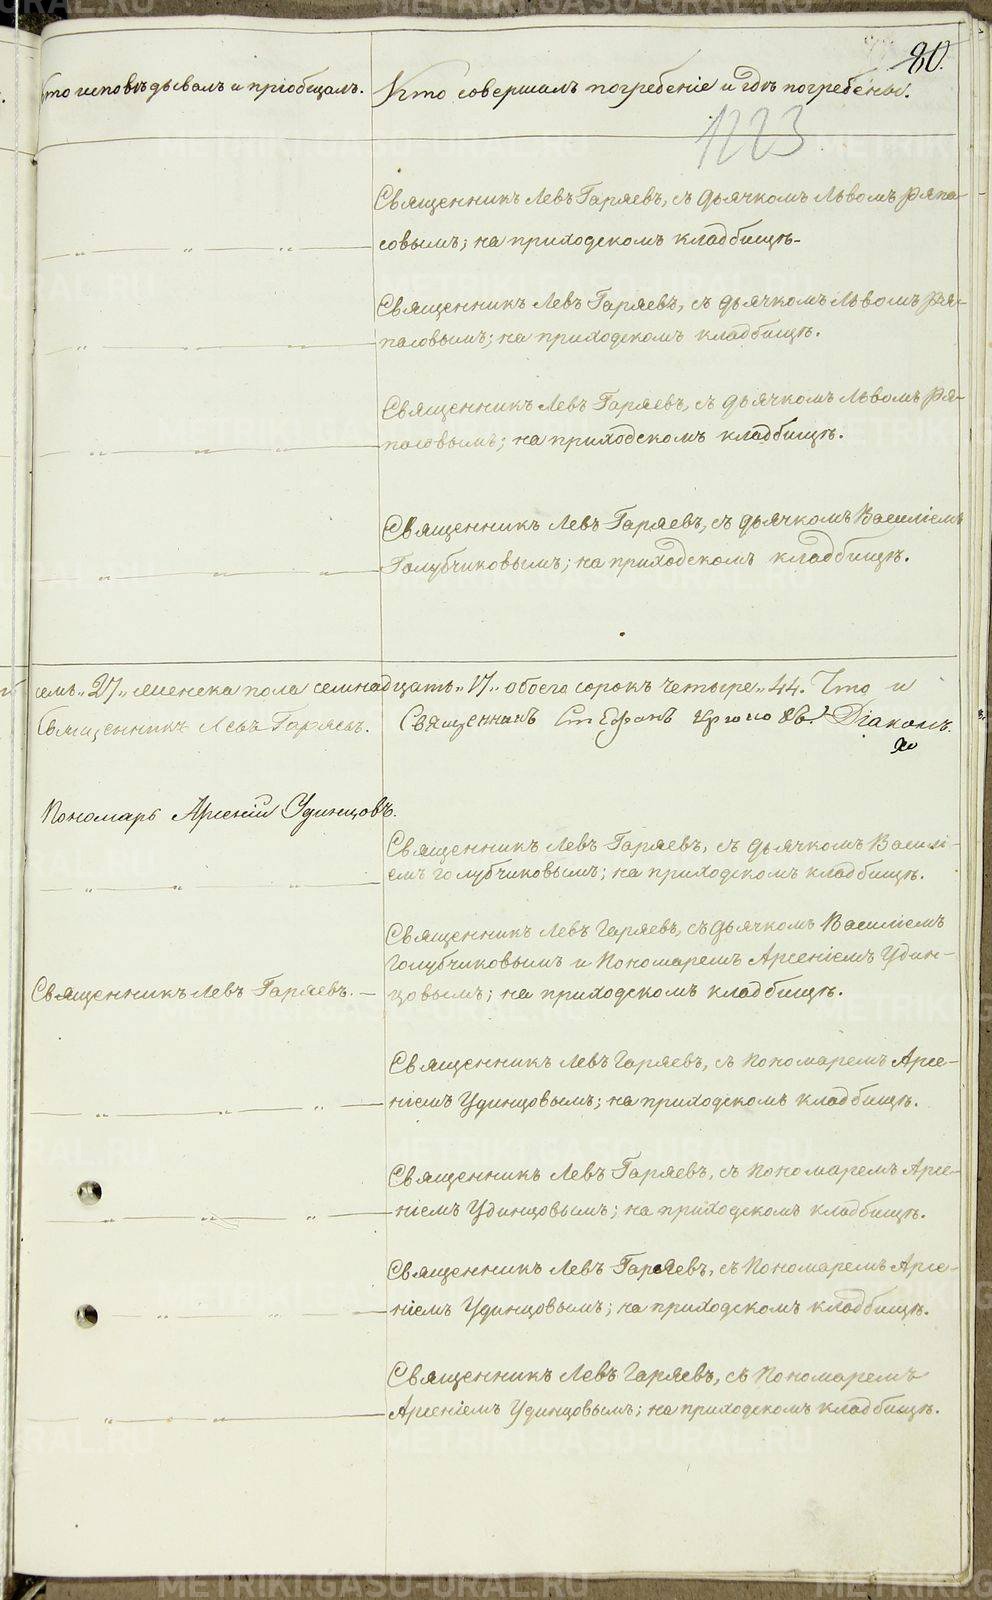 80.
Кто исповѣдывалъ и пріобщалъ. Кто совершалъ погребеніе и гдѣ погребены.
1223
Священникъ Левъ Гаряевъ, съ дьячкомъ Львомъ Ряпа-
совымъ; на приходскомъ кладбищѣ.
Священникъ Левъ Гаряевъ, съ дьячкомъ Львомъ Ря-
пасовымъ; на приходскомъ кладбищѣ.
Священникъ Левъ Гаряевъ, съ дьячкомъ Львомъ Ря-
пасовымъ; на приходскомъ кладбищѣ.
Священникъ Левъ Гаряевъ, съ дьячкомъ Василіемъ
Голубчиковымъ; на приходскомъ кладбищѣ.
семь „27„ женска пола семнадцать „17„ обоего сорокъ четыре „44. Что и
Священникъ Левъ Гаряевъ. Священникъ Стефанъ Діаконъ.
Пономарь Арсеній Удинцовъ.
Священникъ Левъ Гаряевъ, съ дьячкомъ Василі-
емъ Голубчиковымъ; на приходскомъ кладбищѣ.
Священникъ Левъ Гаряевъ, съ дьячкомъ Василіемъ
Голубчиковымъ и Пономаремъ Арсеніемъ Удин-
Священникъ Левъ Гаряевъ. — цовымъ; на приходскомъ кладбищѣ.
Священникъ Левъ Гаряевъ, съ Пономаремъ Арсе-
ніемъ Удинцовымъ; на приходскомъ кладбищѣ.
Священникъ Левъ Гаряевъ, съ Пономаремъ Арсе-
ніемъ Удинцовымъ; на приходскомъ кладбищѣ.
Священникъ Левъ Гаряевъ, съ Пономаремъ Арсе-
ніемъ Удинцовымъ; на приходскомъ кладбищѣ.
Священникъ Левъ Гаряевъ, съ Пономаремъ
Арсеніемъ Удинцовымъ; на приходскомъ кладбищѣ.
METRIKI.GASO-URAL.RU